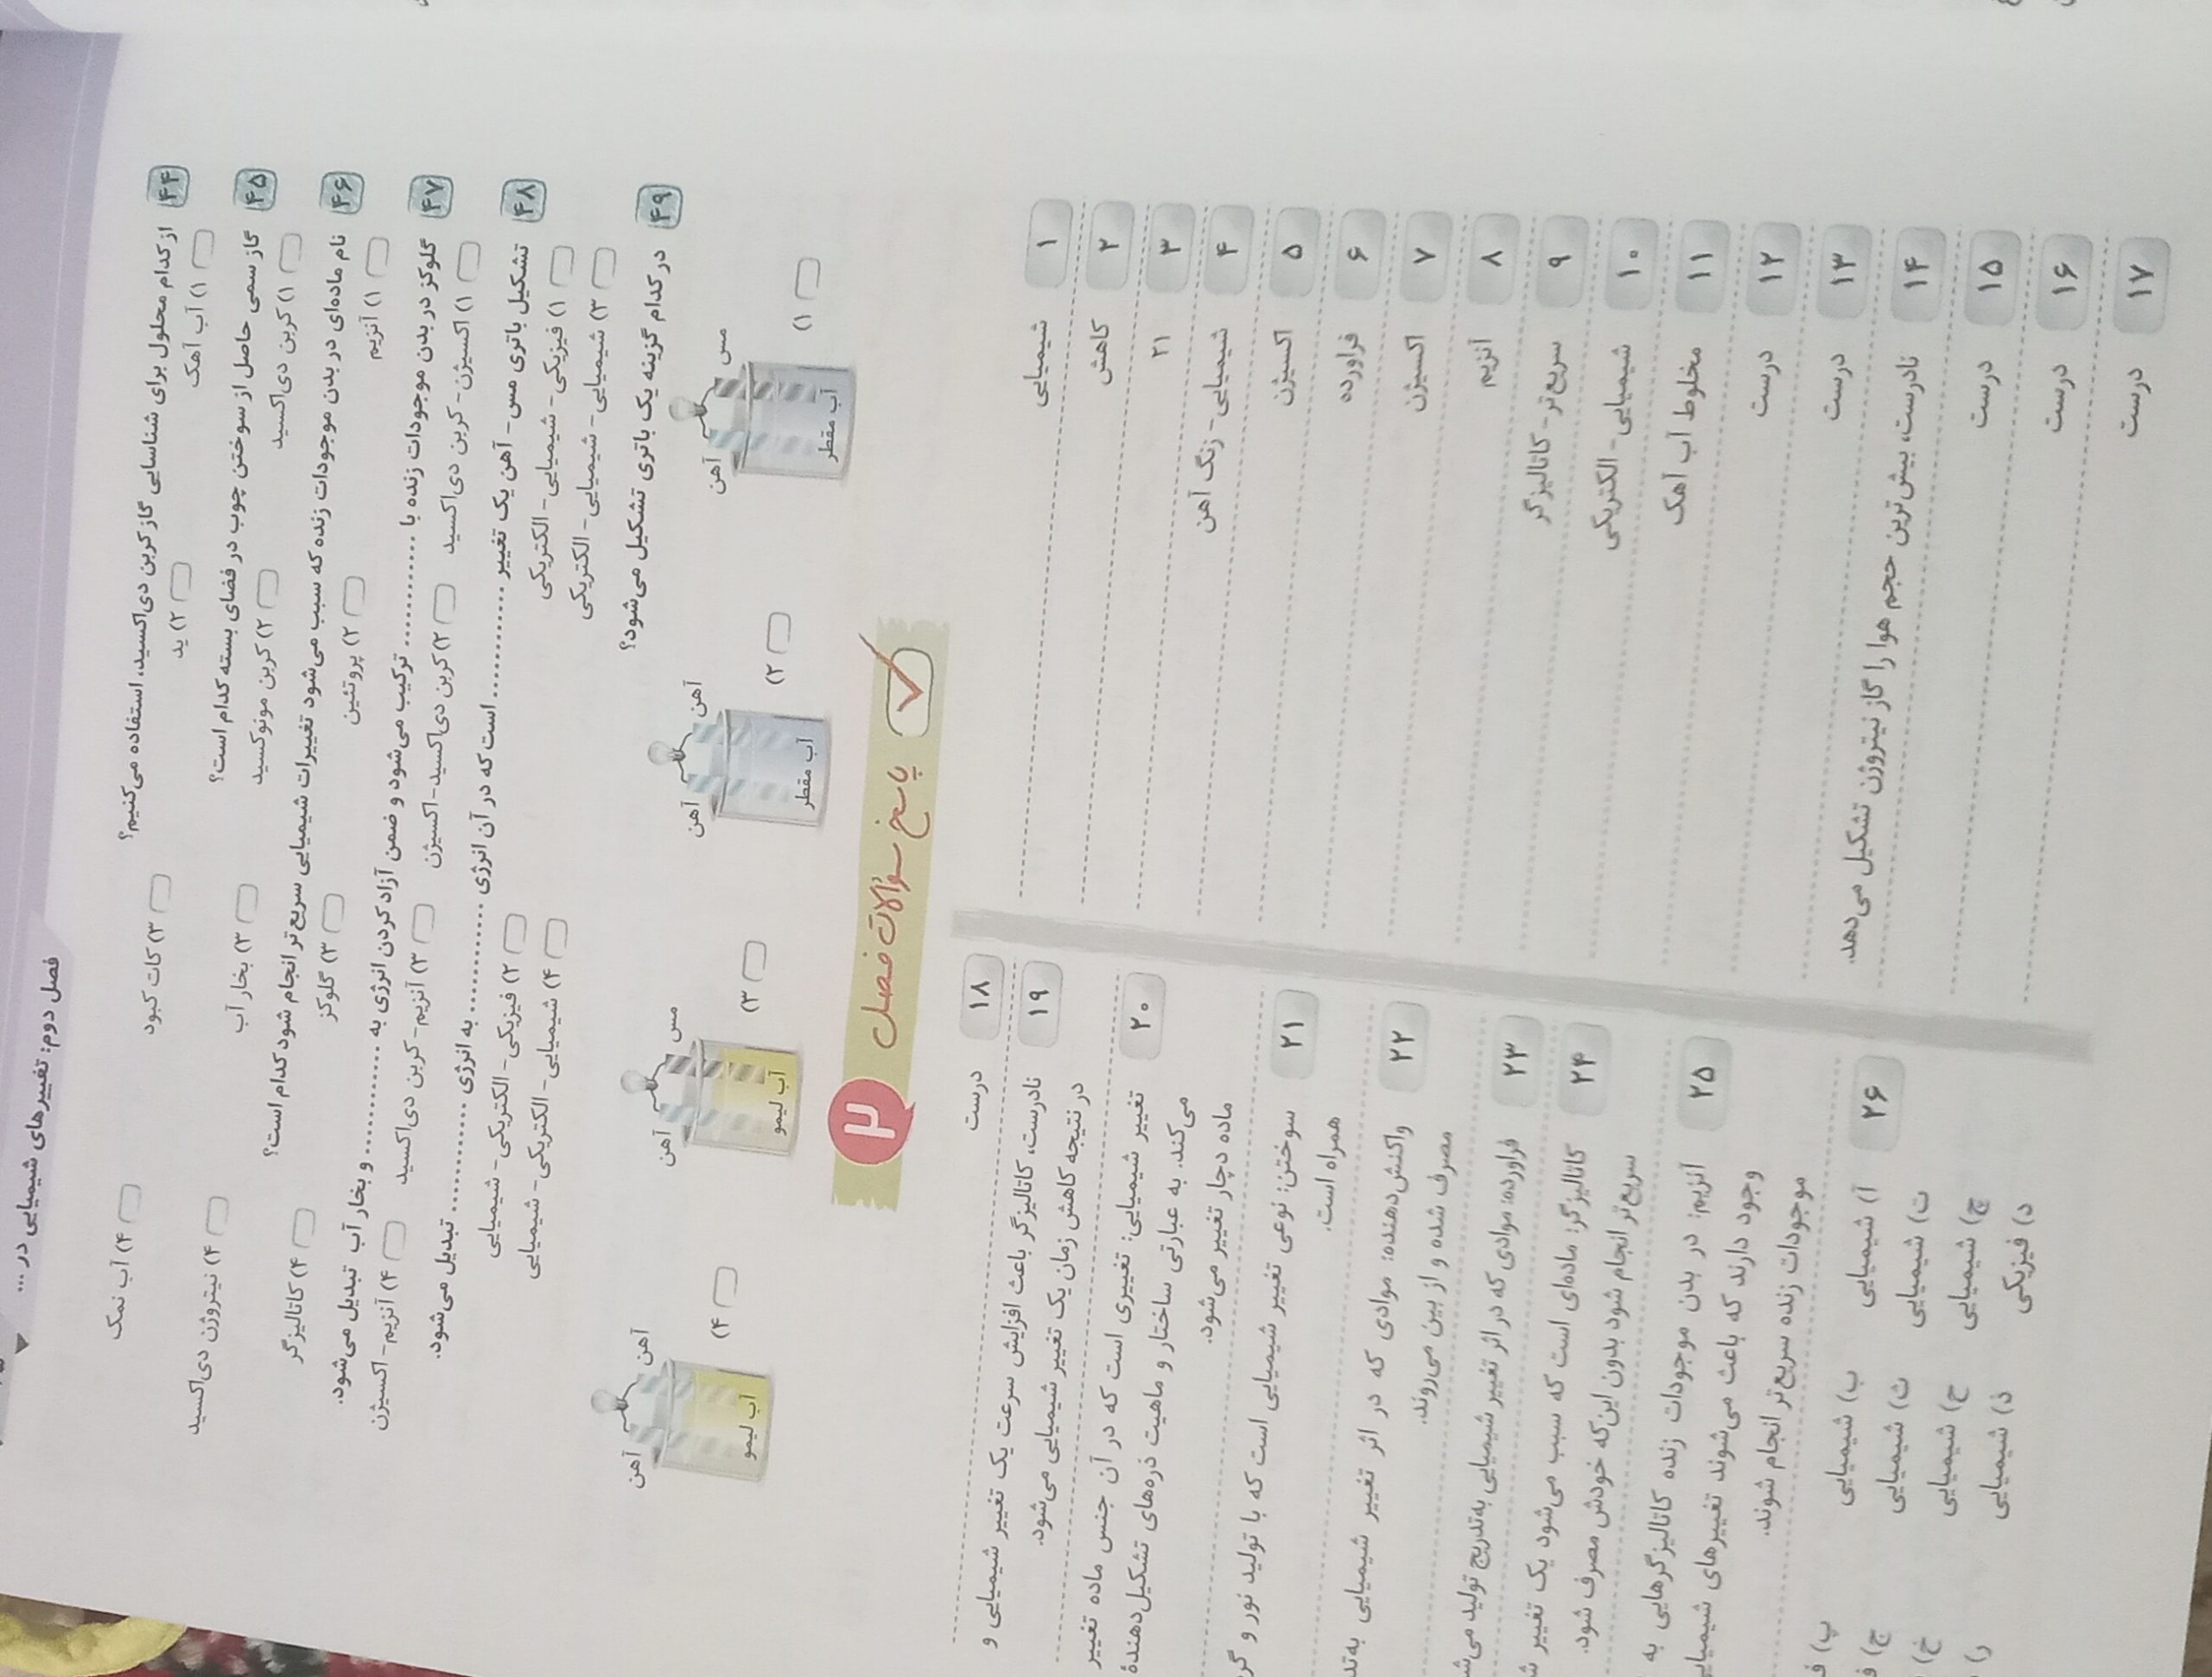 فصل دوم: تغییرهای شیمیایی در ...
۴۴ از کدام محلول برای شناسایی گاز کربن دی‌اکسید، استفاده می‌کنیم؟
۱) آب آهک ۲) ید ۳) کات کبود ۴) آب نمک
۴۵ گاز سمی حاصل از سوختن چوب در فضای بسته کدام است؟
۱) کربن دی‌اکسید ۲) کربن مونوکسید ۳) بخار آب ۴) نیتروژن دی‌اکسید
۴۶ نام ماده‌ای در بدن موجودات زنده که سبب می‌شود تغییرات شیمیایی سریع‌تر انجام شود کدام است؟
۱) آنزیم ۲) پروتئین ۳) گلوکز ۴) کاتالیزگر
۴۷ گلوکز در بدن موجودات زنده با ............ ترکیب می‌شود و ضمن آزاد کردن انرژی به ............ و بخار آب تبدیل می‌شود.
۱) اکسیژن - کربن دی‌اکسید ۲) کربن دی‌اکسید - اکسیژن ۳) آنزیم - کربن دی‌اکسید ۴) آنزیم - اکسیژن
۴۸ تشکیل باتری مس - آهن یک تغییر ............ است که در آن انرژی ............ به انرژی ............ تبدیل می‌شود.
۱) فیزیکی - شیمیایی - الکتریکی ۲) فیزیکی - الکتریکی - شیمیایی
۳) شیمیایی - شیمیایی - الکتریکی ۴) شیمیایی - الکتریکی - شیمیایی
۴۹ در کدام گزینه یک باتری تشکیل می‌شود؟
۱) ۲) ۳) ۴)
مس آهن آب مقطر
آهن آهن آب مقطر
مس آهن آب لیمو
آهن آهن آب لیمو
پاسخ سؤالات فصل ۲
۱ شیمیایی
۲ کاهش
۳ ۲۱
۴ شیمیایی - زنگ آهن
۵ اکسیژن
۶ فراورده
۷ اکسیژن
۸ آنزیم
۹ سریع‌تر - کاتالیزگر
۱۰ شیمیایی - الکتریکی
۱۱ مخلوط آب آهک
۱۲ درست
۱۳ درست
۱۴ نادرست، بیش‌ترین حجم هوا را گاز نیتروژن تشکیل می‌دهد.
۱۵ درست
۱۶ درست
۱۷ درست
۱۸ درست
۱۹ نادرست، کاتالیزگر باعث افزایش سرعت یک تغییر شیمیایی و
در نتیجه کاهش زمان یک تغییر شیمیایی می‌شود.
۲۰ تغییر شیمیایی: تغییری است که در آن جنس ماده تغییر
می‌کند. به عبارتی ساختار و ماهیت ذره‌های تشکیل‌دهندهٔ
ماده دچار تغییر می‌شود.
۲۱ سوختن: نوعی تغییر شیمیایی است که با تولید نور و
همراه است.
۲۲ واکنش‌دهنده: موادی که در اثر تغییر شیمیایی
مصرف شده و از بین می‌روند.
۲۳ فراورده: موادی که در اثر تغییر شیمیایی به‌تدریج تولید
۲۴ کاتالیزگر: ماده‌ای است که سبب می‌شود یک تغییر
سریع‌تر انجام شود بدون این‌که خودش مصرف شود.
۲۵ آنزیم: در بدن موجودات زنده کاتالیزگرهایی به
وجود دارند که باعث می‌شوند تغییرهای
موجودات زنده سریع‌تر انجام شوند.
۲۶ آ) شیمیایی ب) شیمیایی پ)
ت) شیمیایی ث) شیمیایی ج)
چ) شیمیایی ح) شیمیایی خ)
د) فیزیکی ذ) شیمیایی ر)